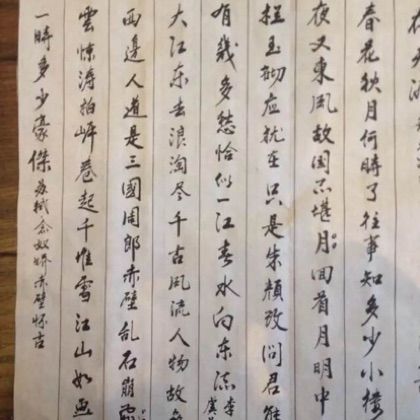 春花秋月何時了往事知多少小樓
夜又東風故国不堪月回首月明中
栏玉砌应犹在只是朱顏改问君能
有幾多愁恰似一江春水向东流 李
大江东去浪淘尽千古風流人物故
西邊人道是三國周郎赤壁乱石崩
雲惊涛拍岸卷起千堆雪江山如画
一時多少豪傑 苏轼念奴娇赤壁怀古